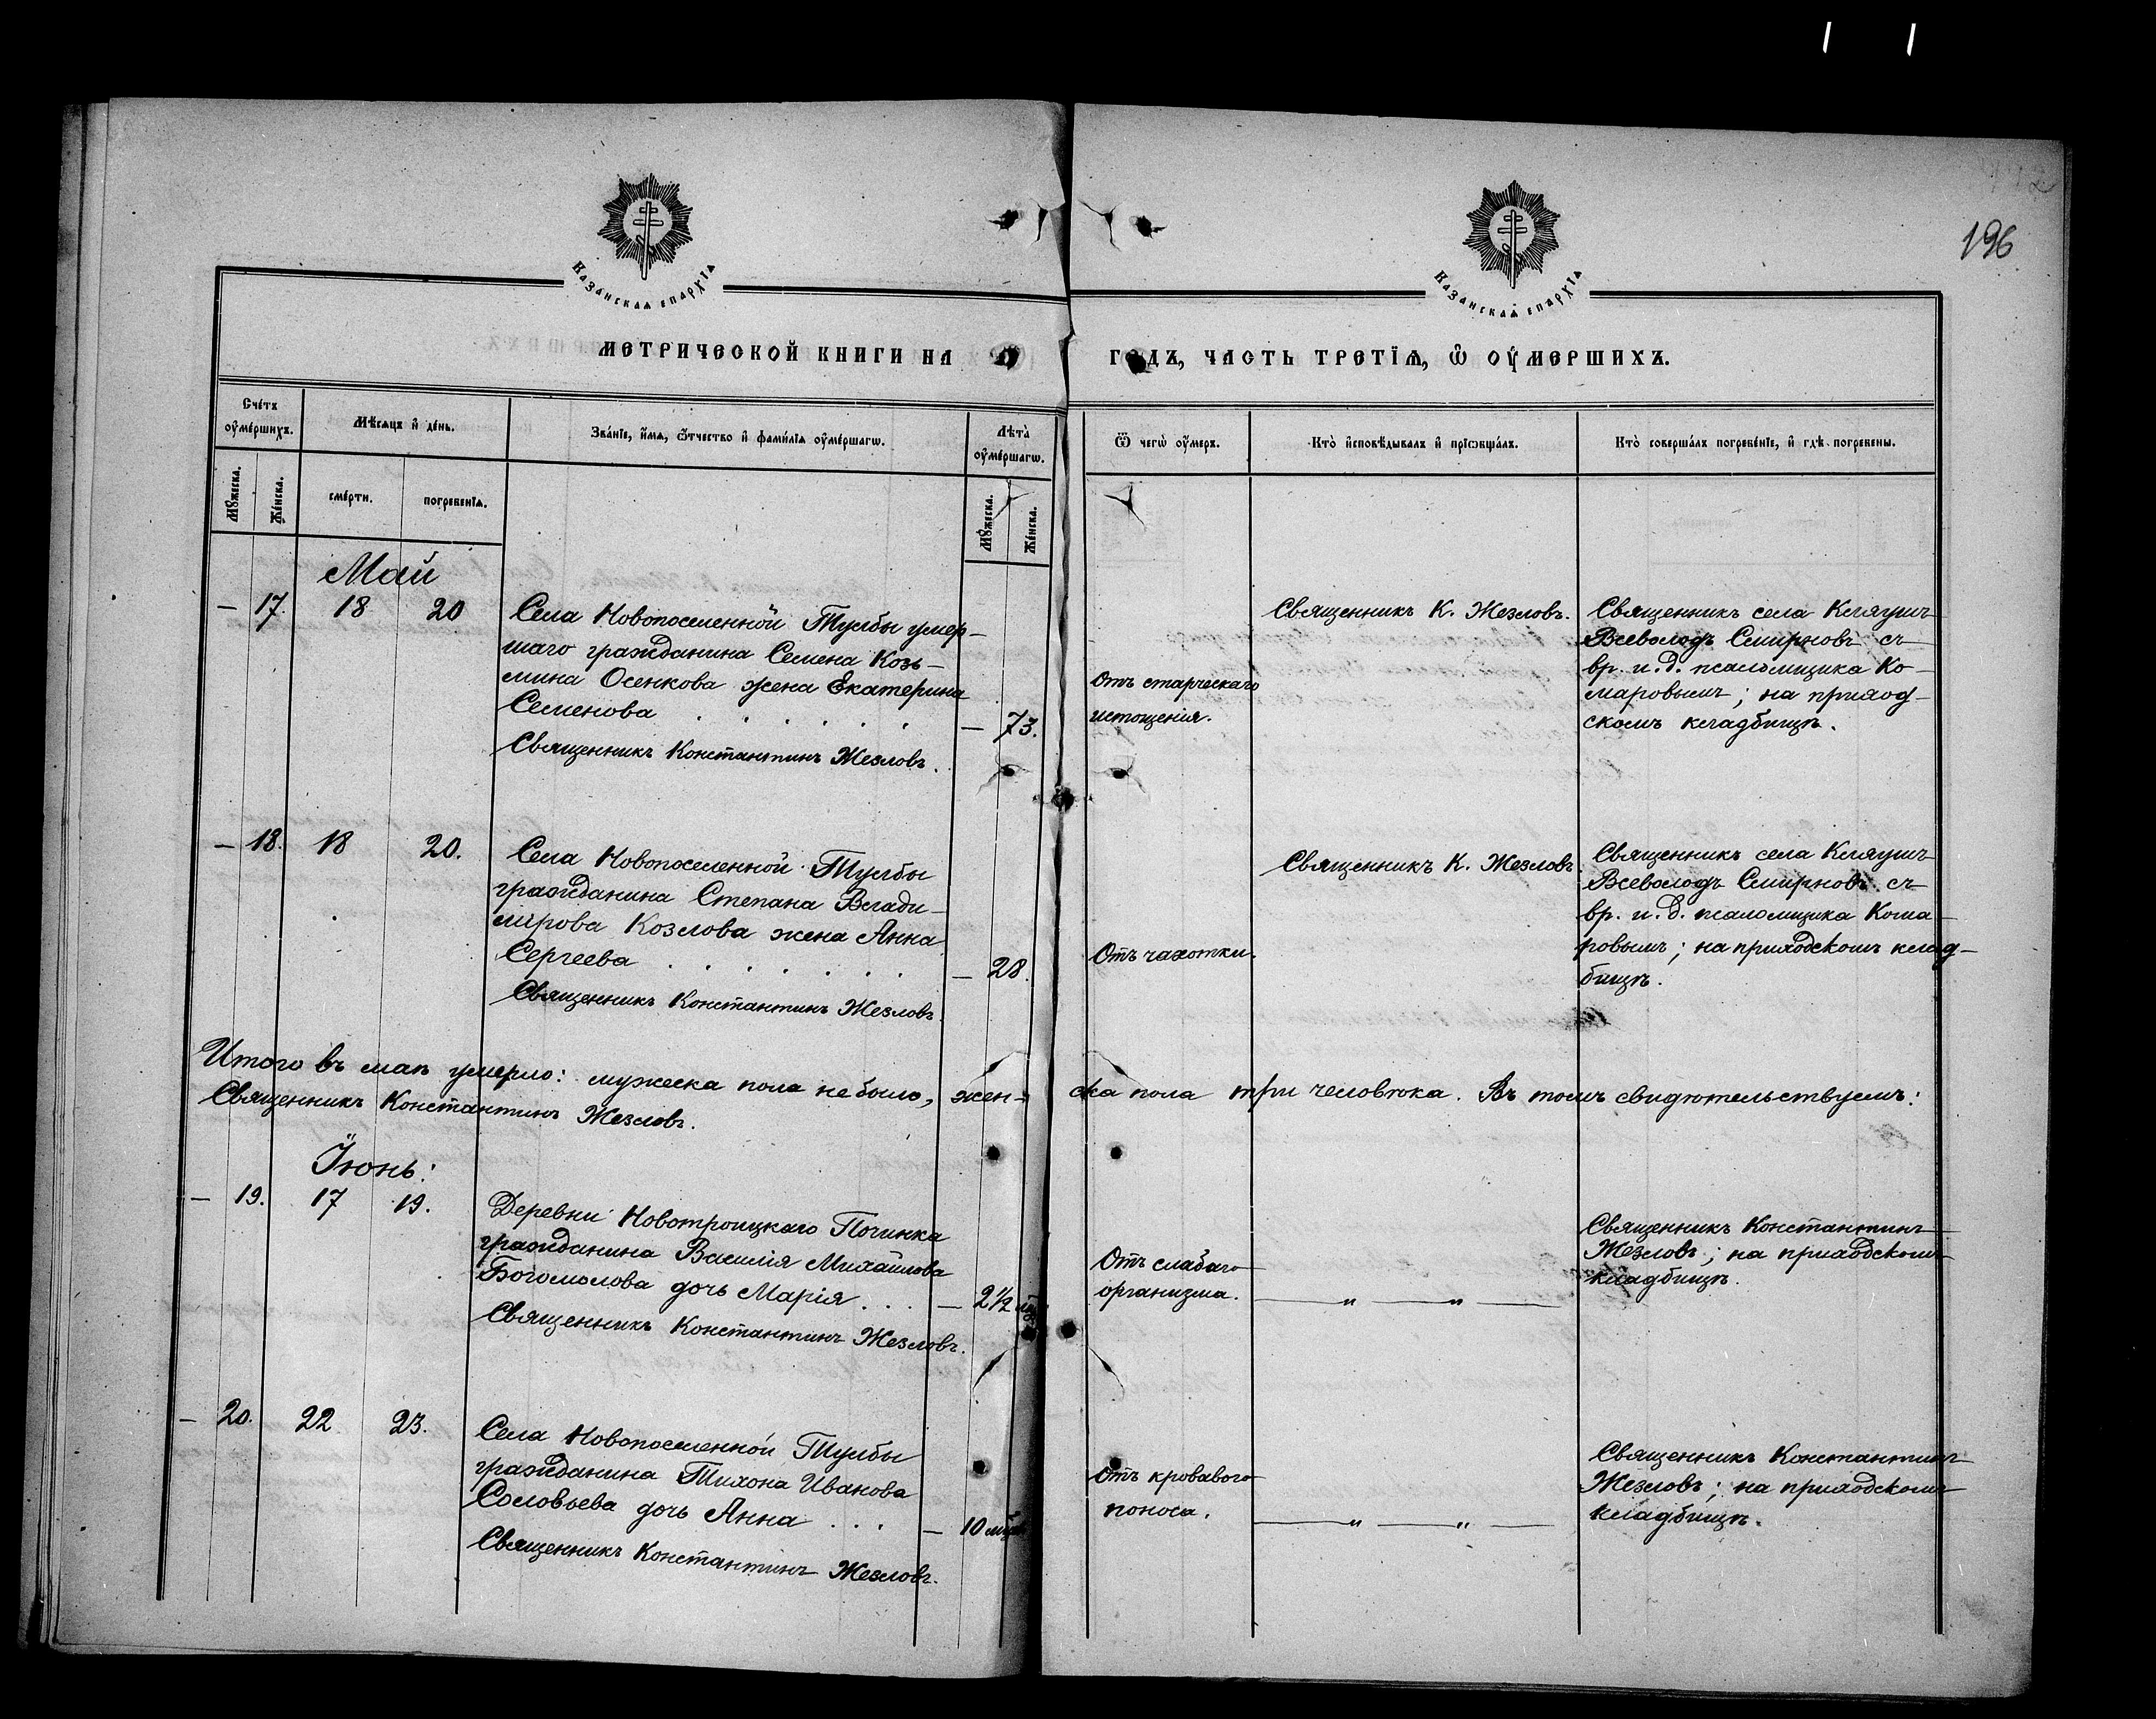 196
Казанская епархїѧ
Казанская епархїѧ
МЕТРИЧЕСКОЙ КНИГИ НА
ГОДЪ, ЧАСТЬ ТРЕТЇѦ, Ѿ ОУМЕРШИХЪ.
Счетъ оумершихъ.
Мѣсѧцъ и день.
Званїе, имѧ, отчество и фамилїѧ оумершагѡ.
Лѣта оумершагѡ.
Ѿ чегѡ оумеръ.
Кто исповѣдывалъ и прїѡбщалъ.
Кто совершалъ погребенїе, и гдѣ погребены.
Мужеска.
Женска.
смерти.
погребенїѧ.
Мужеска.
Женска.
Май
— 17. 18 20
Села Новопоселенной Тулбы умер-
шаго гражданина Семена Козь-
мина Осенкова жена Екатерина
Семенова . . . . . . — 73.
Священникъ Константинъ Жезловъ.
Отъ старческаго
истощенія.
Священникъ К. Жезловъ.
Священникъ села Кляушъ
Всеволодъ Смирновъ съ
вр. и. д. псаломщика Ко-
маровымъ; на приход-
скомъ кладбищѣ.
— 18. 18 20.
Села Новопоселенной Тулбы
гражданина Степана Влади-
мірова Козлова жена Анна
Сергеева . . . . . . . — 28.
Священникъ Константинъ Жезловъ.
Отъ чахотки.
Священникъ К. Жезловъ.
Священникъ села Кляушъ
Всеволодъ Смирновъ съ
вр. и. д. псаломщика Кома-
ровымъ; на приходскомъ клад-
бищѣ.
Итого въ маѣ умерло: мужеска пола не было, жен-ска пола три человѣка. Въ томъ свидѣтельствуемъ:
Священникъ Константинъ Жезловъ.
Іюнь:
— 19. 17 19.
Деревни Новотроицкаго Починка
гражданина Василія Михайлова
Богомолова дочь Марія . . . — 2 1/2
Священникъ Константинъ Жезловъ.
Отъ слабаго
организма.
— „ — „ —
Священникъ Константинъ
Жезловъ; на приходскомъ
кладбищѣ.
— 20. 22 23.
Села Новопоселенной Тулбы
гражданина Тихона Иванова
Соловьева дочь Анна . . . — 10
Священникъ Константинъ Жезловъ.
Отъ кроваваго
поноса.
— „ — „ —
Священникъ Константинъ
Жезловъ; на приходскомъ
кладбищѣ.